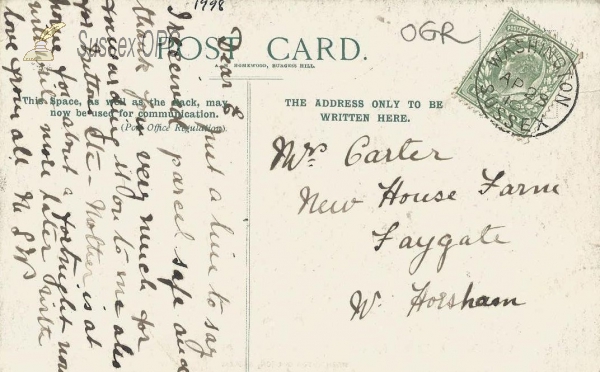 1998
OGR
Sussex OPC
POST CARD.
A. H. HOMEWOOD, BURGESS HILL.
This Space, as well as the back, may
now be used for communication.
(Post Office Regulation).
THE ADDRESS ONLY TO BE
WRITTEN HERE.
WASHINGTON
AP 23
SUSSEX
Mrs Carter
New House Farm
Faygate
Nr. Horsham
Dear
Just a line to say
I received parcel safe and
thank you very much for
forwarding it on to me also
for letters Etc - Mother is at
home for about a fortnight now
will tell more later
love your all